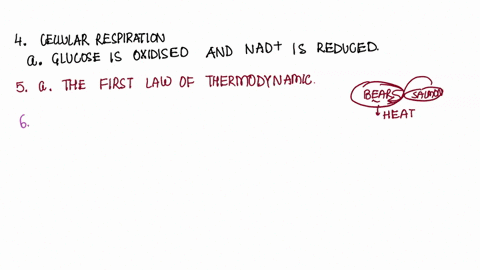 4. CELLULAR RESPIRATION
a. GLUCOSE IS OXIDISED AND NAD+ IS REDUCED.
5. a. THE FIRST LAW OF THERMODYNAMIC.
BEARS SALMON
HEAT
6.